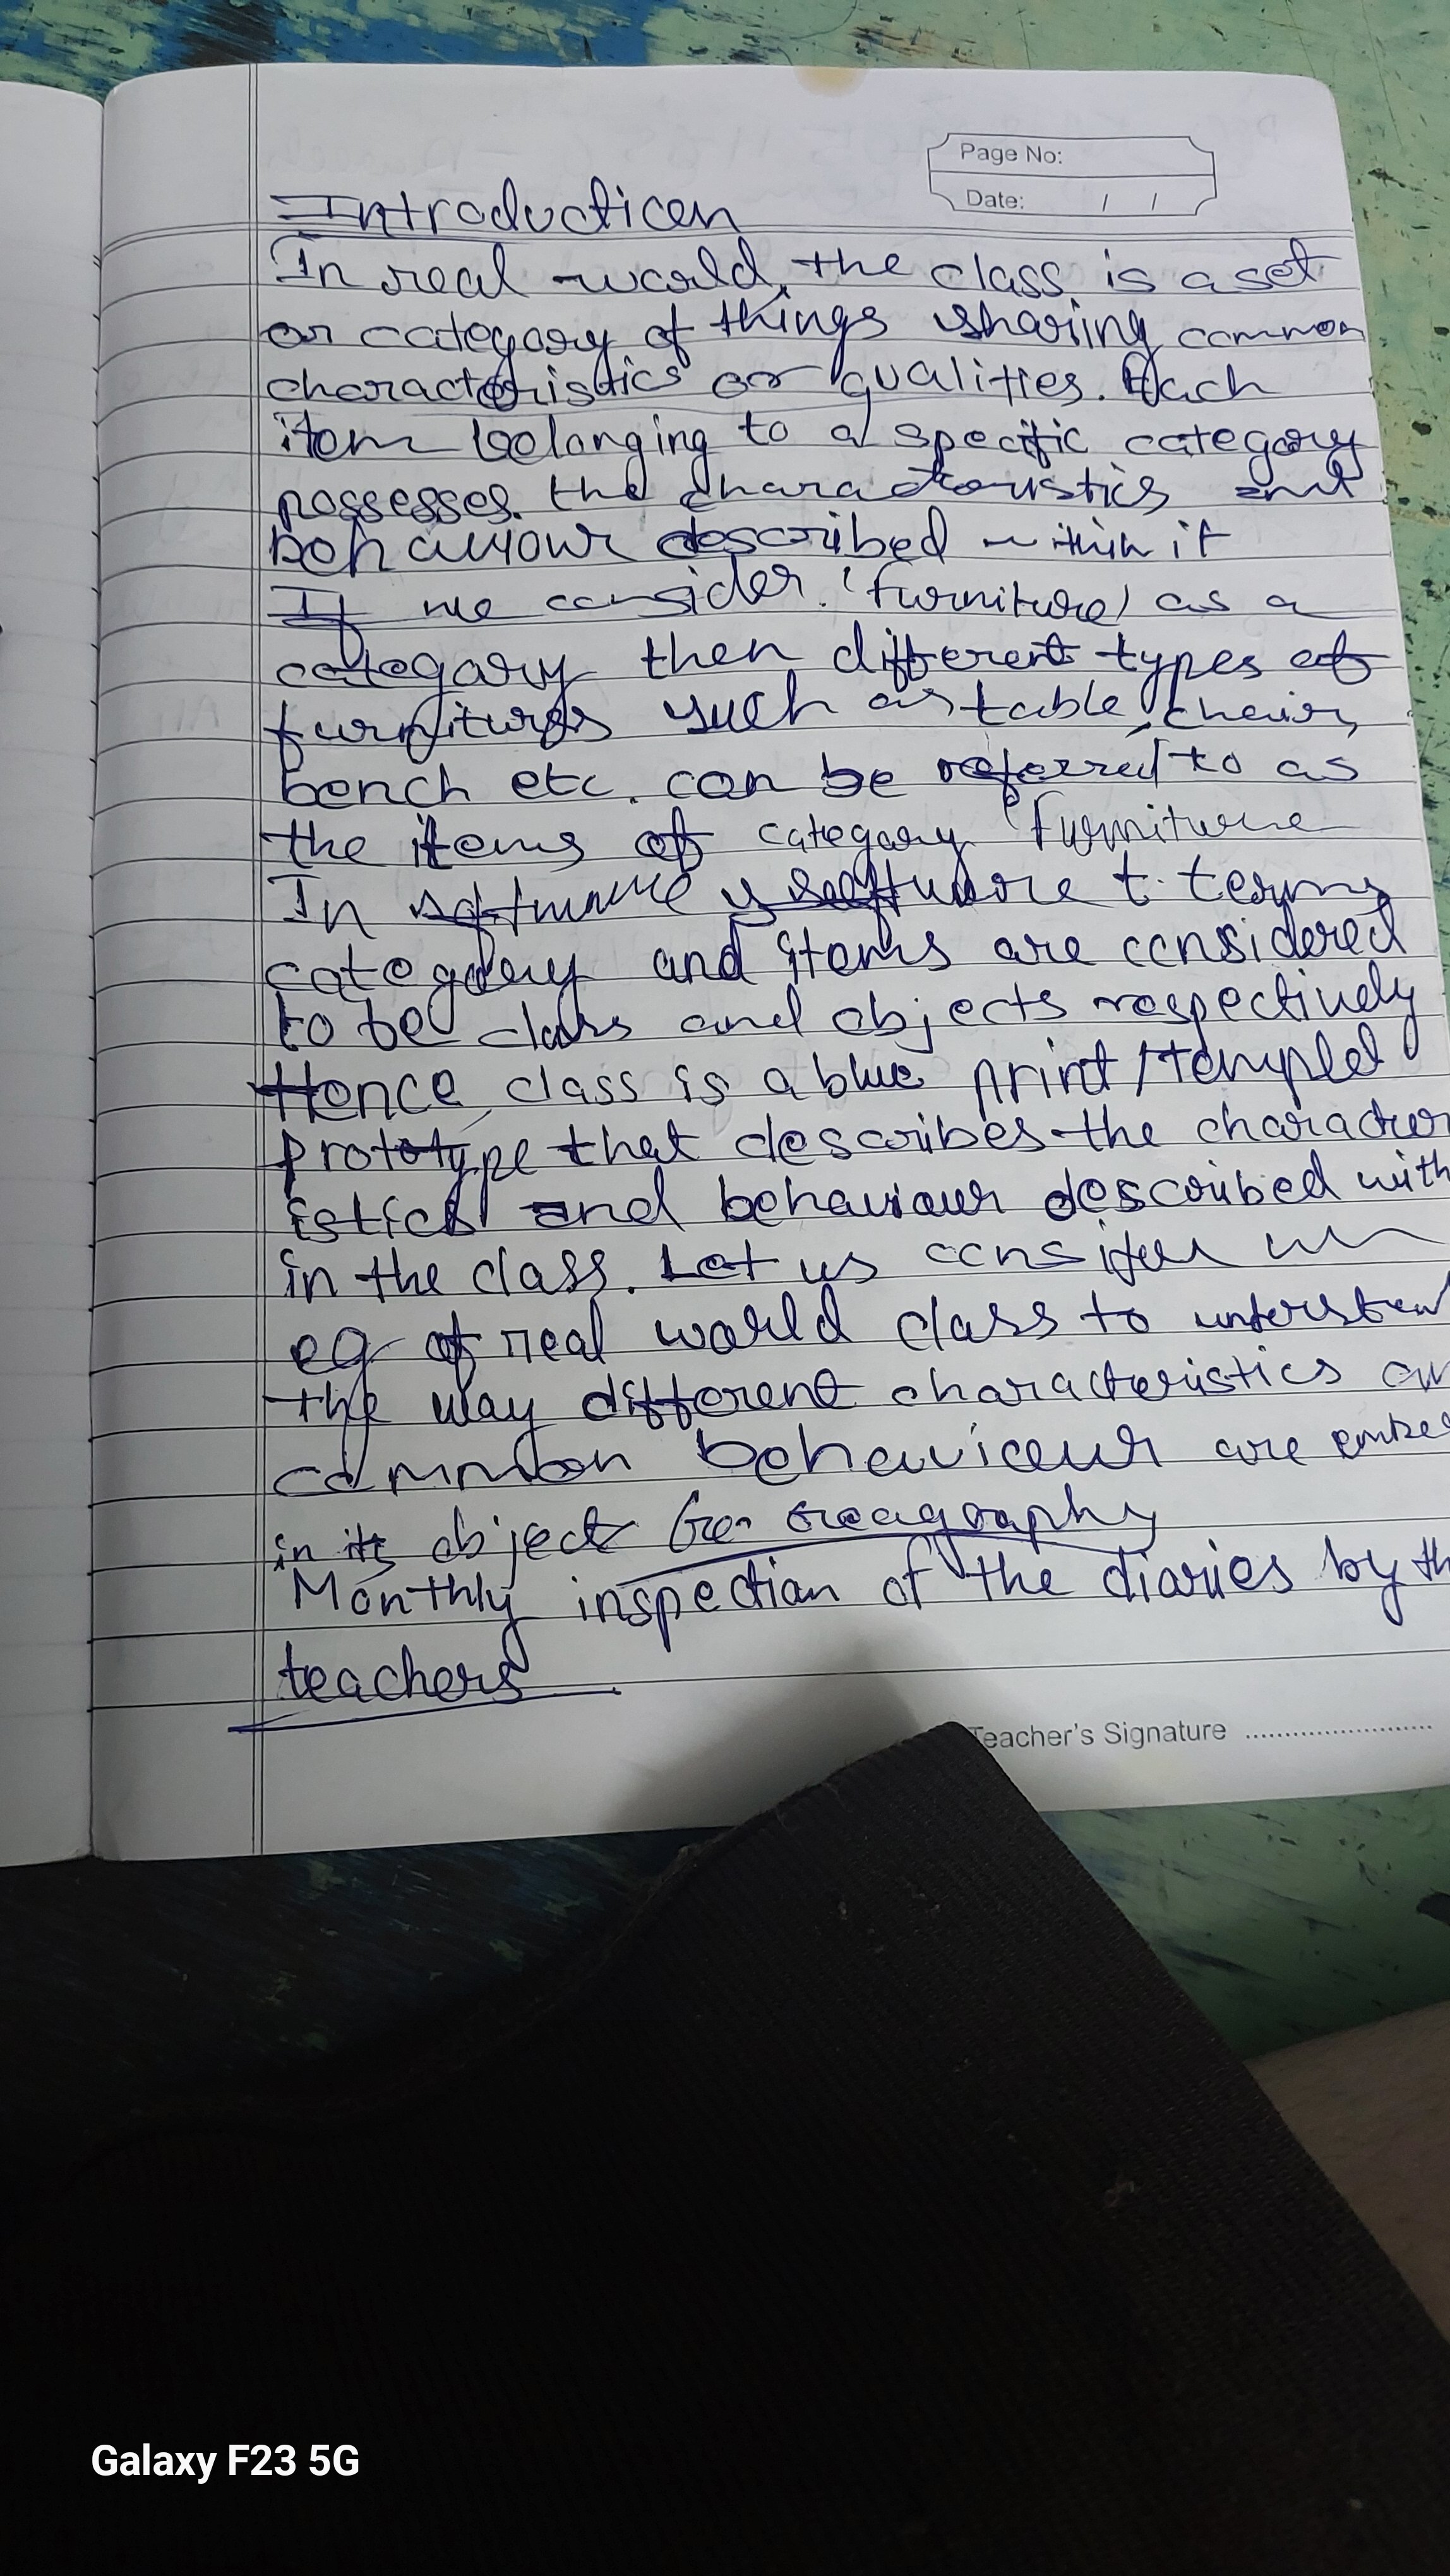 Page No:
Date: / /
Introduction
In real world, the class is a set
or category of things sharing common
characteristics or qualities. Each
item belonging to a specific category
possesses the characteristics and
behaviour described within it
If we consider 'furniture' as a
category then different types of
furnitures such as table, chair,
bench etc. can be referred to as
the items of category 'furniture
In software terms
category and items are considered
to be class and objects respectively
Hence class is a blue print/
prototype that describes the character
istics and behaviour described with
in the class. Let us consider
eg of real world class to
the way different characteristics
common behaviour are
in its object
Monthly inspection of the diaries by th
teachers
Teacher's Signature ........................
Galaxy F23 5G